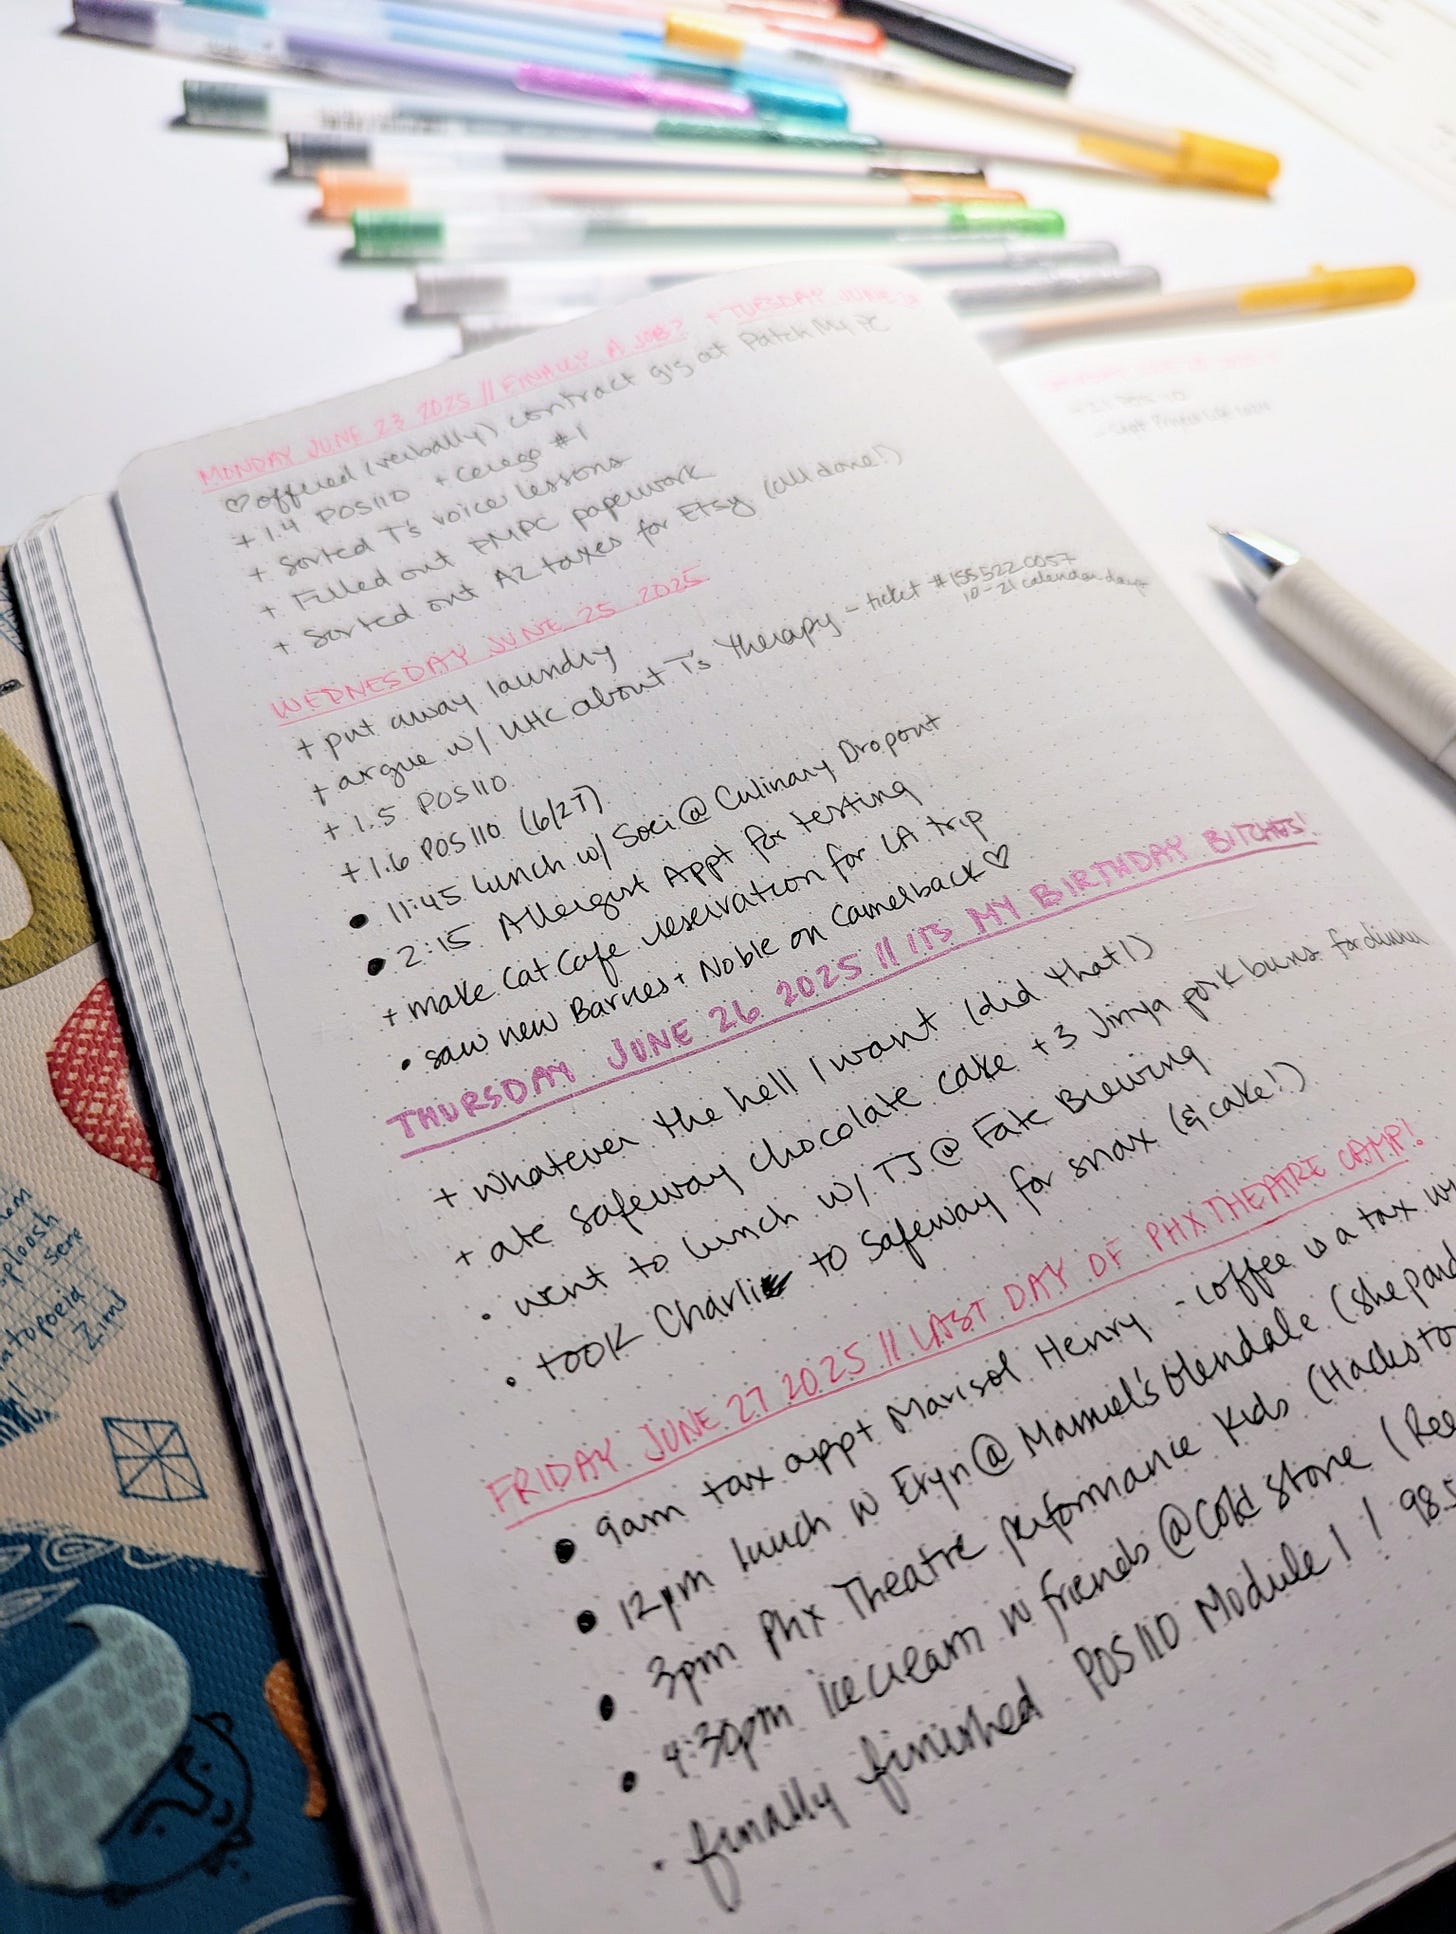 MONDAY JUNE 23 2025 // FINALLY A JOB? + TUESDAY JUNE 24
♡ offered (verbally) contract gig at Patch My PC
+ 1.4 POS110 + Cerego #1
+ Sorted T's voice lessons
+ Filled out PMPC paperwork
+ Sorted out AZ taxes for Etsy (all done!)
WEDNESDAY JUNE 25 2025
+ put away laundry
+ argue w/ UHC about T's therapy - ticket #155522.0057
10-21 calendar days
+ 1.5 POS110
+ 1.6 POS110 (6/27)
• 11:45 Lunch w/ Soci @ Culinary Dropout
• 2:15 Allergist Appt for testing
+ make Cat Cafe reservation for LA trip
• saw new Barnes + Noble on Camelback ♡
THURSDAY JUNE 26 2025 // IT'S MY BIRTHDAY BITCHES!
+ whatever the hell I want (did that!)
+ ate safeway chocolate cake + 3 Jinya pork buns for dinner
• went to lunch w/ TJ @ Fate Brewing
• took Charlie to Safeway for snax (& cake!)
FRIDAY JUNE 27 2025 // LAST DAY OF PHX THEATRE CAMP!
• 9am tax appt Marisol Henry - coffee is a tax
• 12pm lunch w Eryn @ Manuel's Glendale (she paid
• 3pm Phx Theatre performance Kids (Hadesto
• 4:30pm icecream w friends @ Cold Stone (
• finally finished POS110 Module 1! 98.5